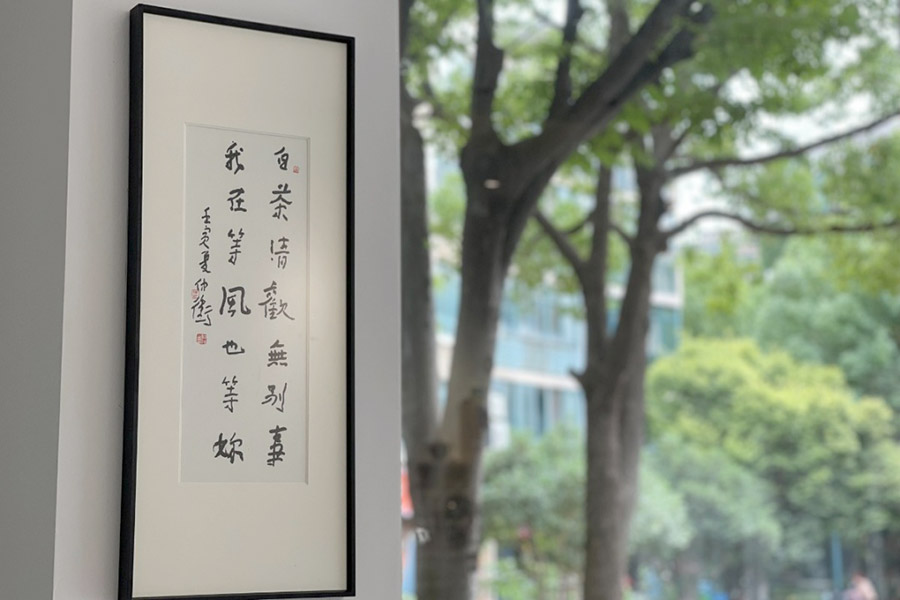 白茶清歡無別事
我在等風也等妳
壬寅夏仲衡